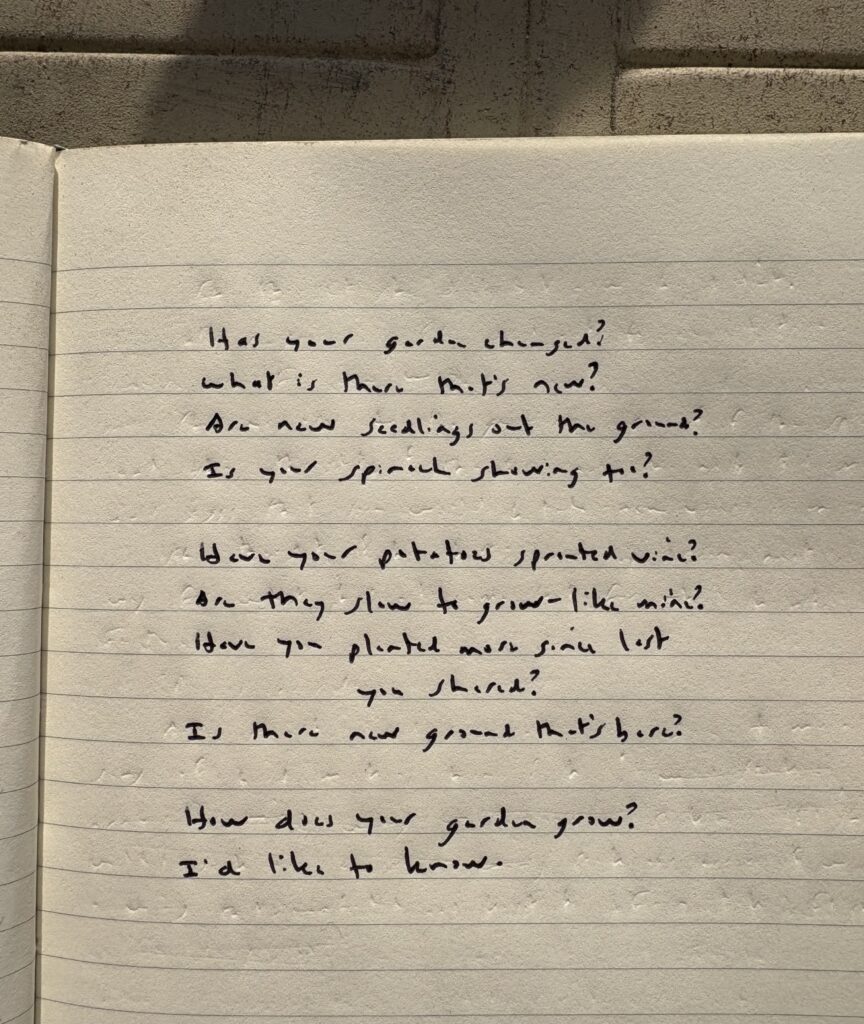 Has your garden changed?
What is there that's new?
Are new seedlings out the ground?
Is your spinach showing too?
Have your potatoes sprouted vine?
Are they slow to grow-like mine?
Have you planted more since last
you shared?
Is there new ground that's bare?
How does your garden grow?
I'd like to know.